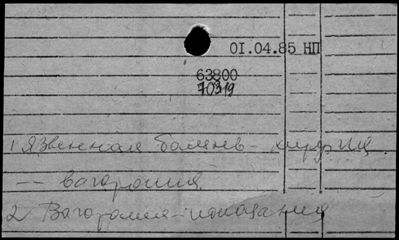 01.04.85 НП
63800
1 Язвенная болезнь - хирургия
-- ваготомия.
2 Ваготомия - показания